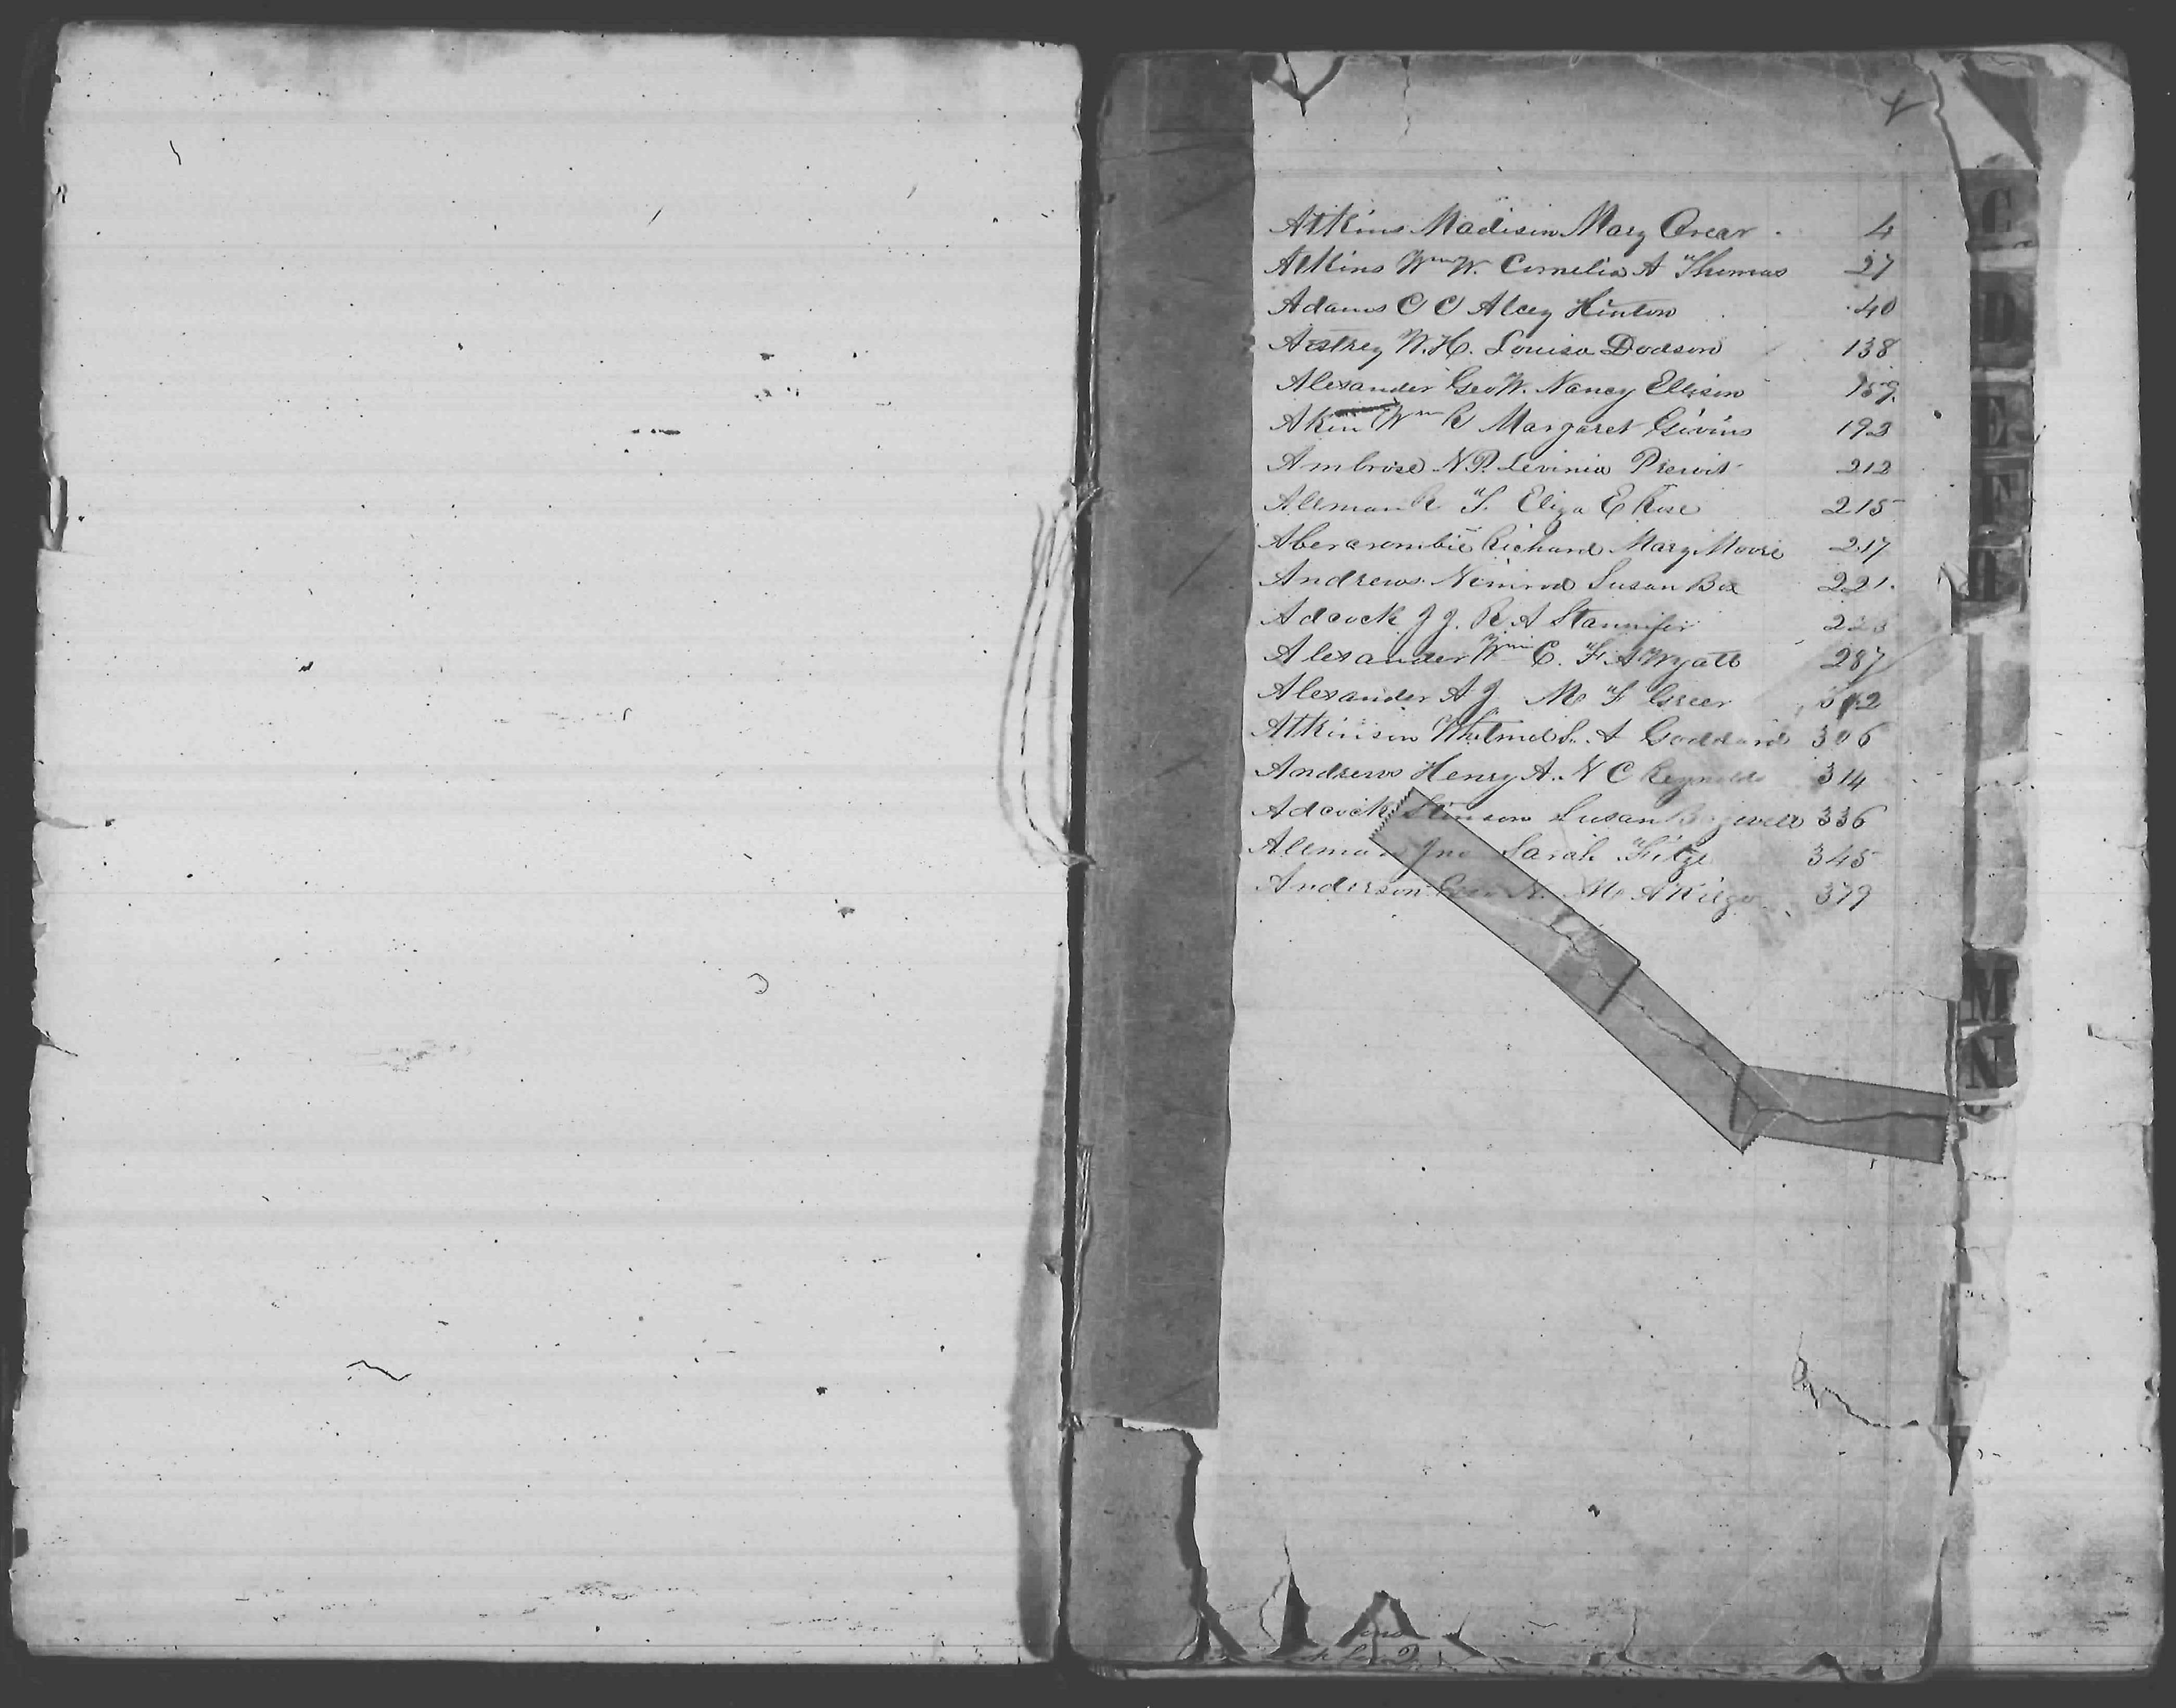 Atkins Madison Mary Orear 4
Atkins Wm W. Cornelia A Thomas 27
Adams C C Alcey Hinton 40
W. H. Louisa Dodson 138
Alexander Geo W. Nancy Ellison 159
Akin Wm R Margaret Givins 193
Ambrose N. P. Levinia Prewit 212
Allman R T. Eliza E Rose 215
Abercrombie Richard Mary Moore 217
Andrews Nimrod Susan Box 221
Adcock J J. R A Stannifer
Alexander Wm C. F A Wyatt 287
Alexander A J M F Greer
Atkinson S. A Goddard 306
Andrews Henry A. N C Reynolds 314
Adcock Stinson Susan 336
Allman Jno Sarah Fitze 345
Anderson M A Kilgo 379
C
D
E
F
H
M
N